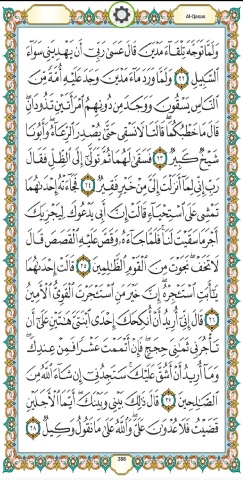 Al-Qasas
وَلَمَّا تَوَجَّهَ تِلْقَاءَ مَدْيَنَ قَالَ عَسَىٰ رَبِّي أَن يَهْدِيَنِي سَوَاءَ
السَّبِيلِ ٢٢ وَلَمَّا وَرَدَ مَاءَ مَدْيَنَ وَجَدَ عَلَيْهِ أُمَّةً مِّنَ
النَّاسِ يَسْقُونَ وَوَجَدَ مِن دُونِهِمُ امْرَأَتَيْنِ تَذُودَانِ
قَالَ مَا خَطْبُكُمَا قَالَتَا لَا نَسْقِي حَتَّىٰ يُصْدِرَ الرِّعَاءُ وَأَبُونَا
شَيْخٌ كَبِيرٌ ٢٣ فَسَقَىٰ لَهُمَا ثُمَّ تَوَلَّىٰ إِلَى الظِّلِّ فَقَالَ
رَبِّ إِنِّي لِمَا أَنزَلْتَ إِلَيَّ مِنْ خَيْرٍ فَقِيرٌ ٢٤ فَجَاءَتْهُ إِحْدَاهُمَا
تَمْشِي عَلَى اسْتِحْيَاءٍ قَالَتْ إِنَّ أَبِي يَدْعُوكَ لِيَجْزِيَكَ
أَجْرَ مَا سَقَيْتَ لَنَا فَلَمَّا جَاءَهُ وَقَصَّ عَلَيْهِ الْقَصَصَ قَالَ
لَا تَخَفْ نَجَوْتَ مِنَ الْقَوْمِ الظَّالِمِينَ ٢٥ قَالَتْ إِحْدَاهُمَا
يَا أَبَتِ اسْتَأْجِرْهُ إِنَّ خَيْرَ مَنِ اسْتَأْجَرْتَ الْقَوِيُّ الْأَمِينُ
٢٦ قَالَ إِنِّي أُرِيدُ أَنْ أُنكِحَكَ إِحْدَى ابْنَتَيَّ هَاتَيْنِ عَلَىٰ أَن
تَأْجُرَنِي ثَمَانِيَ حِجَجٍ فَإِنْ أَتْمَمْتَ عَشْرًا فَمِنْ عِندِكَ
وَمَا أُرِيدُ أَنْ أَشُقَّ عَلَيْكَ سَتَجِدُنِي إِن شَاءَ اللَّهُ مِنَ
الصَّالِحِينَ ٢٧ قَالَ ذَٰلِكَ بَيْنِي وَبَيْنَكَ أَيَّمَا الْأَجَلَيْنِ
قَضَيْتُ فَلَا عُدْوَانَ عَلَيَّ وَاللَّهُ عَلَىٰ مَا نَقُولُ وَكِيلٌ ٢٨
388